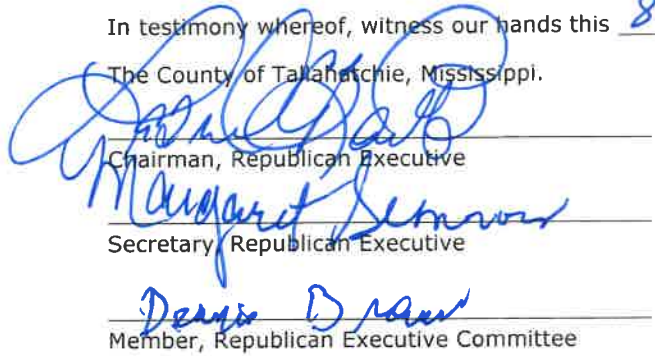 In testimony whereof, witness our hands this 8
The County of Tallahatchie, Mississippi.
Chairman, Republican Executive
Margaret
Secretary, Republican Executive
Dennis Brown
Member, Republican Executive Committee